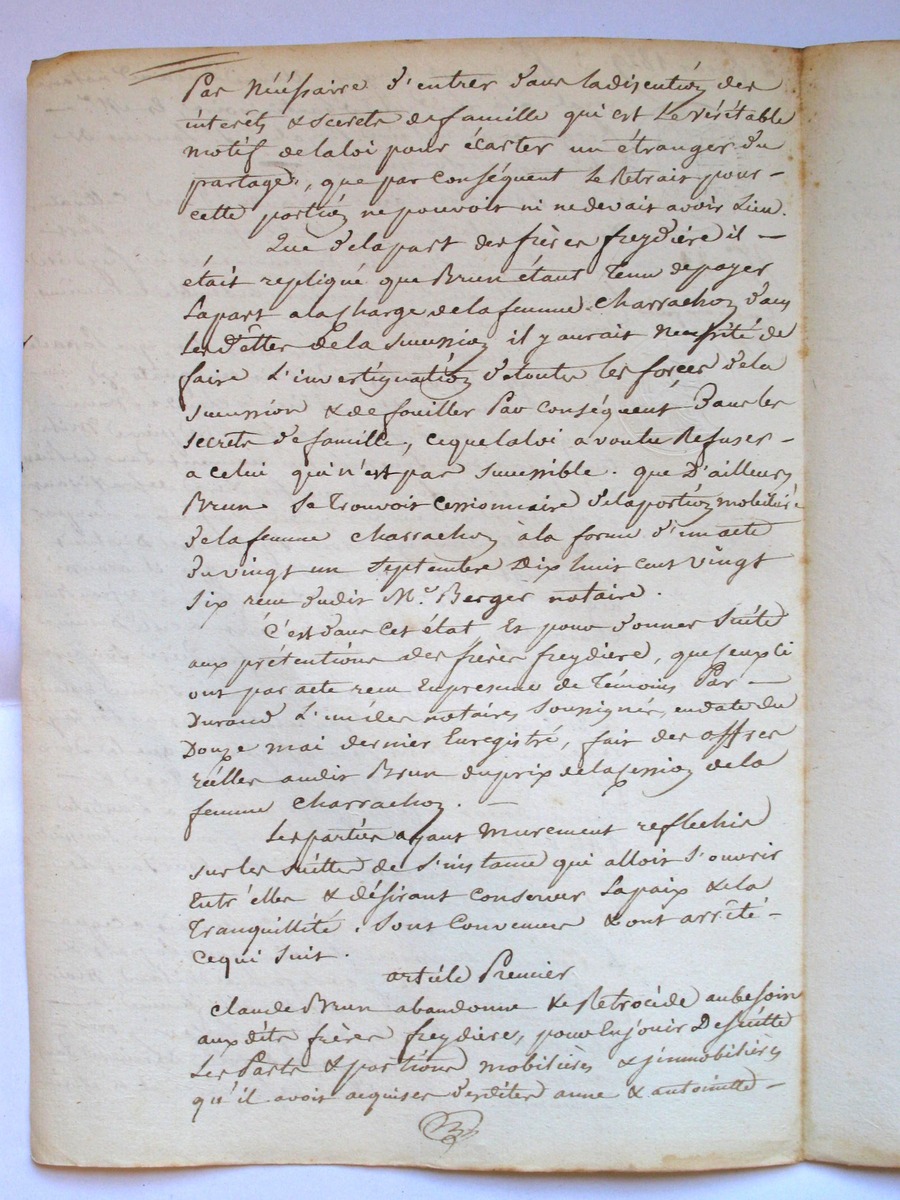 Pas Néćéssaire d'entrer dans la discution des
interets & secrets de famille qui est le véritable
motif de la loi pour écarter un étranger du
partage, que par conséquent le Retrait pour –
cette portion ne pouvoit ni ne devait avoir Lieu.
Que de la part des frères freydière il –
était repliqué que Brun étant Tenu de payer
La part a la charge de la femme Charrachon dans
Les dettes de la succession il y aurait necessité de
faire L'investiguation de toutes les forces de la
succession & de fouiller Par conséquent Dans les
secrets de famille, ce que la loi a voulu Refuser –
a celui qui n'est pas successible. que D'ailleurs
Brun se trouvoit cessionnaire de la portion mobiliére
de la femme Charrachon à la forme d'un acte
du vingt un Septembre Dix huit cent vingt
Six recu dudit Me. Berger notaire.
C'est dans Cet état Et pour donner Suite
aux prétentions des frères freydiere, que ceux ci
ont par acte recu En presence de Témoins Par –
Durand L'un des notaires soussignés, en date du
Douze mai dernier Enregistré, fait des offres
réelles audit Brun du prix de la cession de la
femme Charrachon. –
Les parties ayant Murement reflechie
sur les suittes de L'instance qui alloit S'ouvrir
Entr'elles & désirant conserver La paix & la
Tranquillité, Sont Convenues & ont arrêté –
ce qui Suit.
article Premier
Claude Brun abandonne & Retrocède au besoin
aux dits frères freydieres, pour En jouir De suitte
Les Parts & portions mobilières & immobilières
qu'il avoit acquises desdites anne & antoinette –